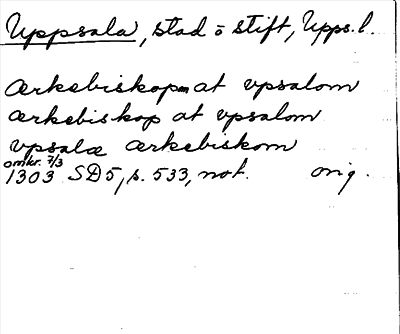 Uppsala, stad o stift, Upps. l.
ærkebiskopm at vpsalom
ærkebiskop at vpsalom
vpsalæ ærkebiskom
omkr. 7/3
1303 SD 5, s. 533, not. orig.